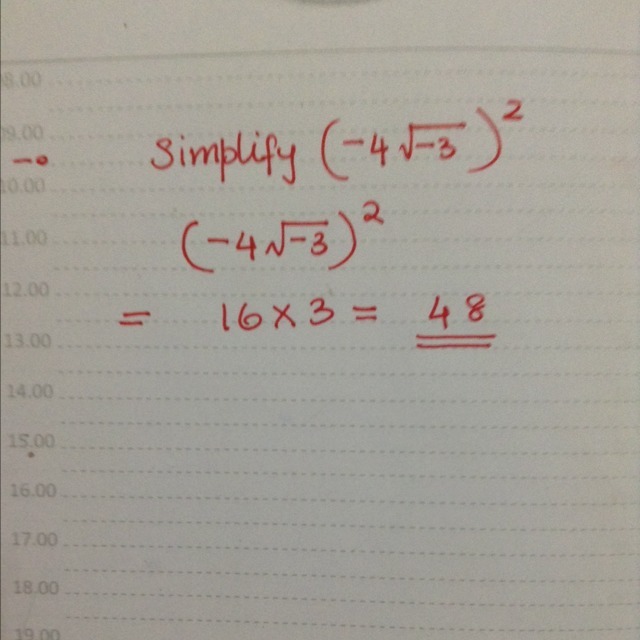 08.00
09.00
Simplify (-4√-3)²
10.00
(-4√-3)²
11.00
12.00
= 16×3 = 48
13.00
14.00
15.00
16.00
17.00
18.00
19.00